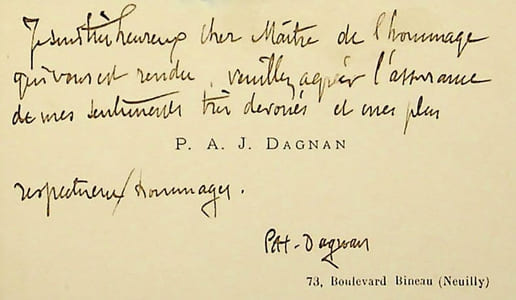 Je suis très heureux cher Maître de l'hommage
qui vous est rendu, veuillez agréer l'assurance
de mes sentiments très devoués et mes plus
P. A. J. DAGNAN
respectueux hommages.
PAJ-Dagnan
73, Boulevard Bineau (Neuilly)